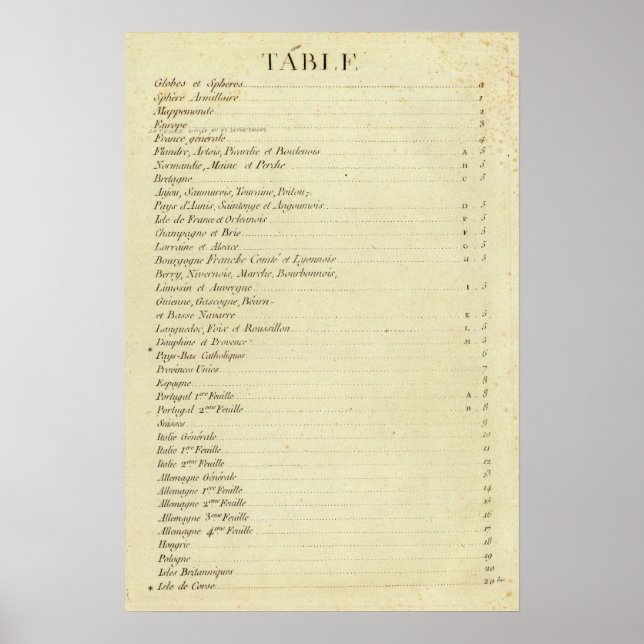 TABLE
Globes et Sphères a
Sphère Armillaire 1
Mappemonde 2
Europe 3
France générale 4
Flandre, Artois, Picardie et Boulenois A. 5
Normandie, Maine et Perche B. 5
Bretagne C. 5
Anjou, Saumurois, Touraine, Poitou,
Pays d'Aunis, Saintonge et Angoumois D. 5
Isle de France et Orleanois E. 5
Champagne et Brie F. 5
Lorraine et Alsace G. 5
Bourgogne Franche Comté et Lyonnois H. 5
Berry, Nivernois, Marche, Bourbonnois,
Limosin et Auvergne I. 5
Guienne, Gascogne, Béarn
et Basse Navarre K. 5
Languedoc, Foix et Roussillon L. 5
Dauphine et Provence M. 5
* Pays-Bas Catholiques 6
Provinces Unies 7
Espagne 8
Portugal 1ere Feuille A. 8
Portugal 2eme Feuille B. 8
Suisses 9
Italie Générale 10
Italie 1ere Feuille 11
Italie 2eme Feuille 12
Allemagne Générale 13
Allemagne 1ere Feuille 14
Allemagne 2eme Feuille 15
Allemagne 3eme Feuille 16
Allemagne 4eme Feuille 17
Hongrie 18
Pologne 19
Isles Britanniques 20
* Isle de Corse 20 bis